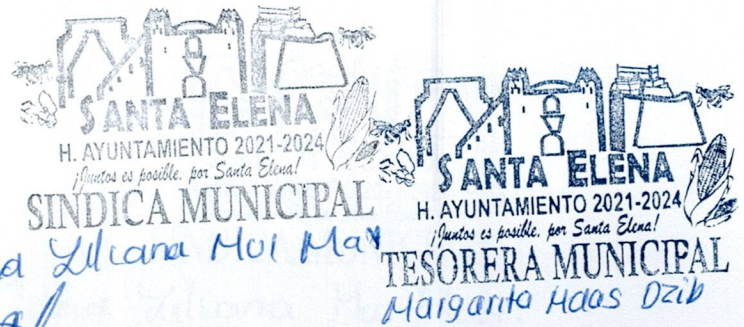 SANTA ELENA
H. AYUNTAMIENTO 2021-2024
¡Juntos es posible, por Santa Elena!
SINDICA MUNICIPAL
a Liliana Mui May
SANTA ELENA
H. AYUNTAMIENTO 2021-2024
¡Juntos es posible, por Santa Elena!
TESORERA MUNICIPAL
Margarita Haas Dzib